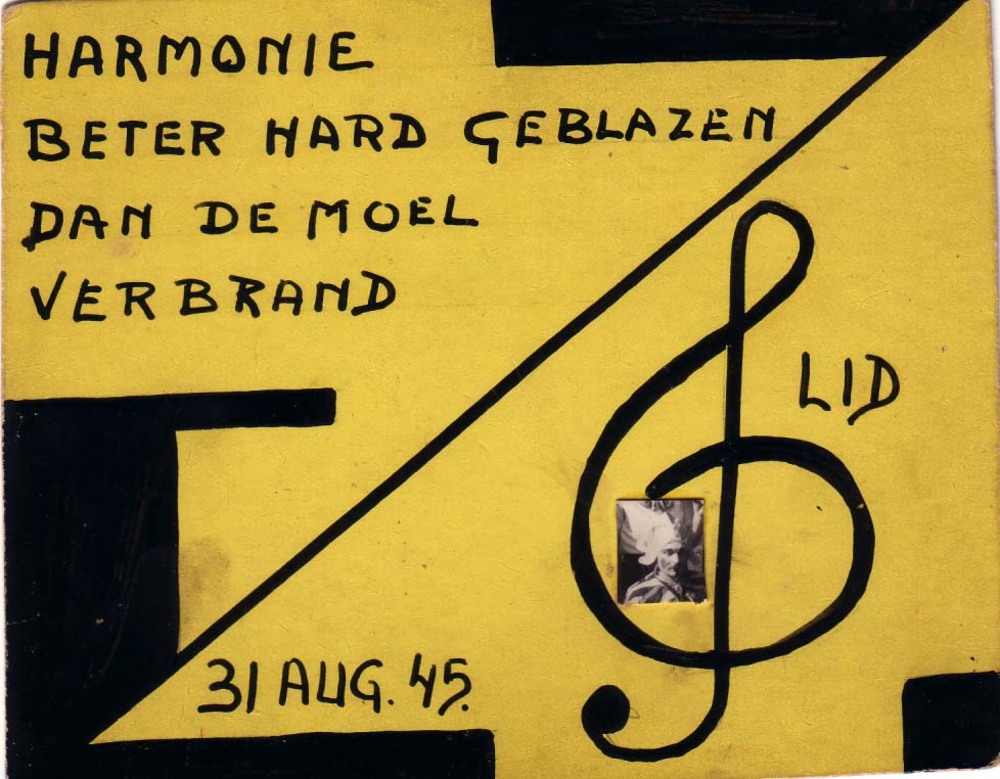 HARMONIE
BETER HARD GEBLAZEN
DAN DE MOEL
VERBRAND
LID
31 AUG. 45.